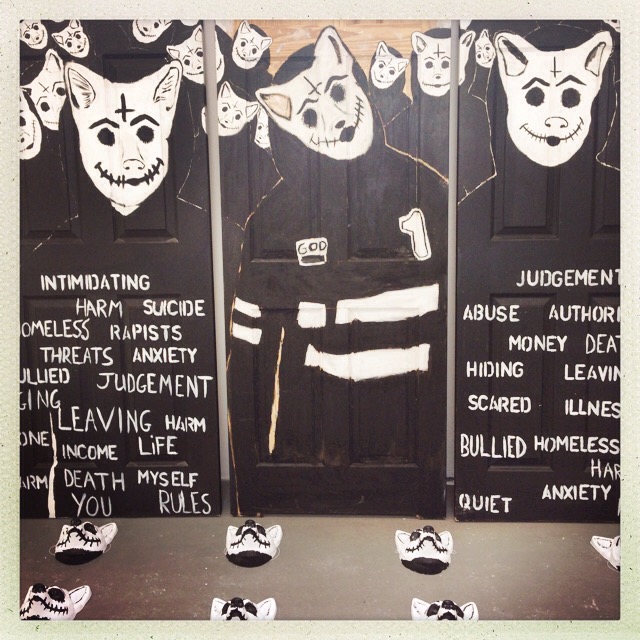 INTIMIDATING
HARM SUICIDE
OMELESS RAPISTS
THREATS ANXIETY
ULLIED JUDGEMENT
GING
LEAVING HARM
ONE INCOME LiFE
ARM DEATH MYSELF
YOU RULES
GOD
1
JUDGEMENT
ABUSE AUTHORI
MONEY DEAT
HIDING LEAVIN
SCARED ILLNES
BULLIED HOMELESS
HAR
ANXIETY
QUIET